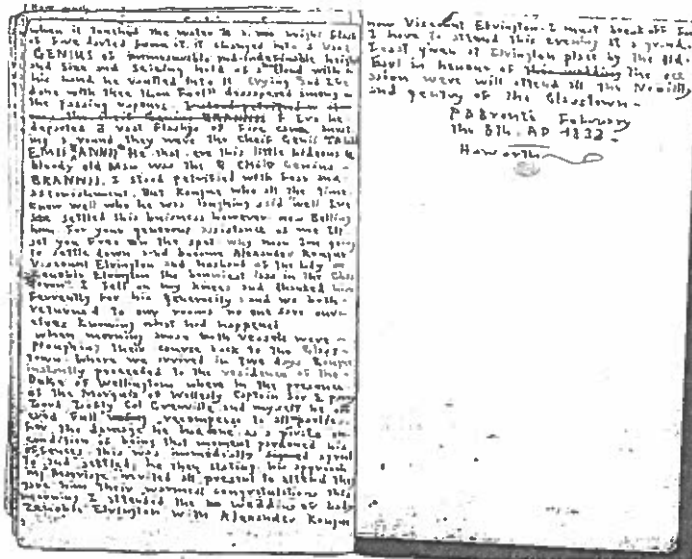 when it touched the water
of Fire darted from it. it changed into a vast
GENIUS of immeasurable and indefinable height
and size and seizing hold of a cloud with
his hand he vaulted into it crying
done with thee thou Fool" disappeared among
the passing vapours.
departed 3 vast Flashes of Fire came
round they were the cheif Genii TALLI
EMII ANNII He that ere this little hideous
bloody old Man was the CHEIF Genius
BRANNII. I stood petrified with Fear and
astonishment. But Rougue who all the time
knew well who he was laughing said "well I've
settled this buisness however now
For your generous assistance of me I'll
set you Free on the spot why man I'm going
to settle down and become Alexander Rougue
Viscount Elrington and Husband of the Lady
Zenobia Elrington the bonniest lass in the Glass
Town" I fell on my knees and thanked him
Fervently for his generosity and we both
returned to our rooms no one save our-
elves knowing what had happened
when morning arose both vessels were
ploughing their course back to the Glass
Town where we arrived in two days Rougue
instantly proceeded to the residence of the
Duke of Wellington where in the presence
of the Marquis of Wellesly Captain
Lord Col Grenville and myself he
Full recompense to all
For the damage he had done as a pirate on
condition of being that moment pardoned his
offences this was immediatly agreed
to and settled, he then stating his approach
ing Marriage invited all present to attend they
gave him their warmest congratulations this
morning I attended the wedding of Lady
Zenobia Elrington with Alexander Rougue
now Viscount Elrington. I must break off For
I have to attend this evening at a grand
Feast given at Elrington place by the
in honour of the occ
asion were will attend all the Nobility
and gentry of the Glasstown—
P B Bronte February
the 8th. AD 1833.
Haworth